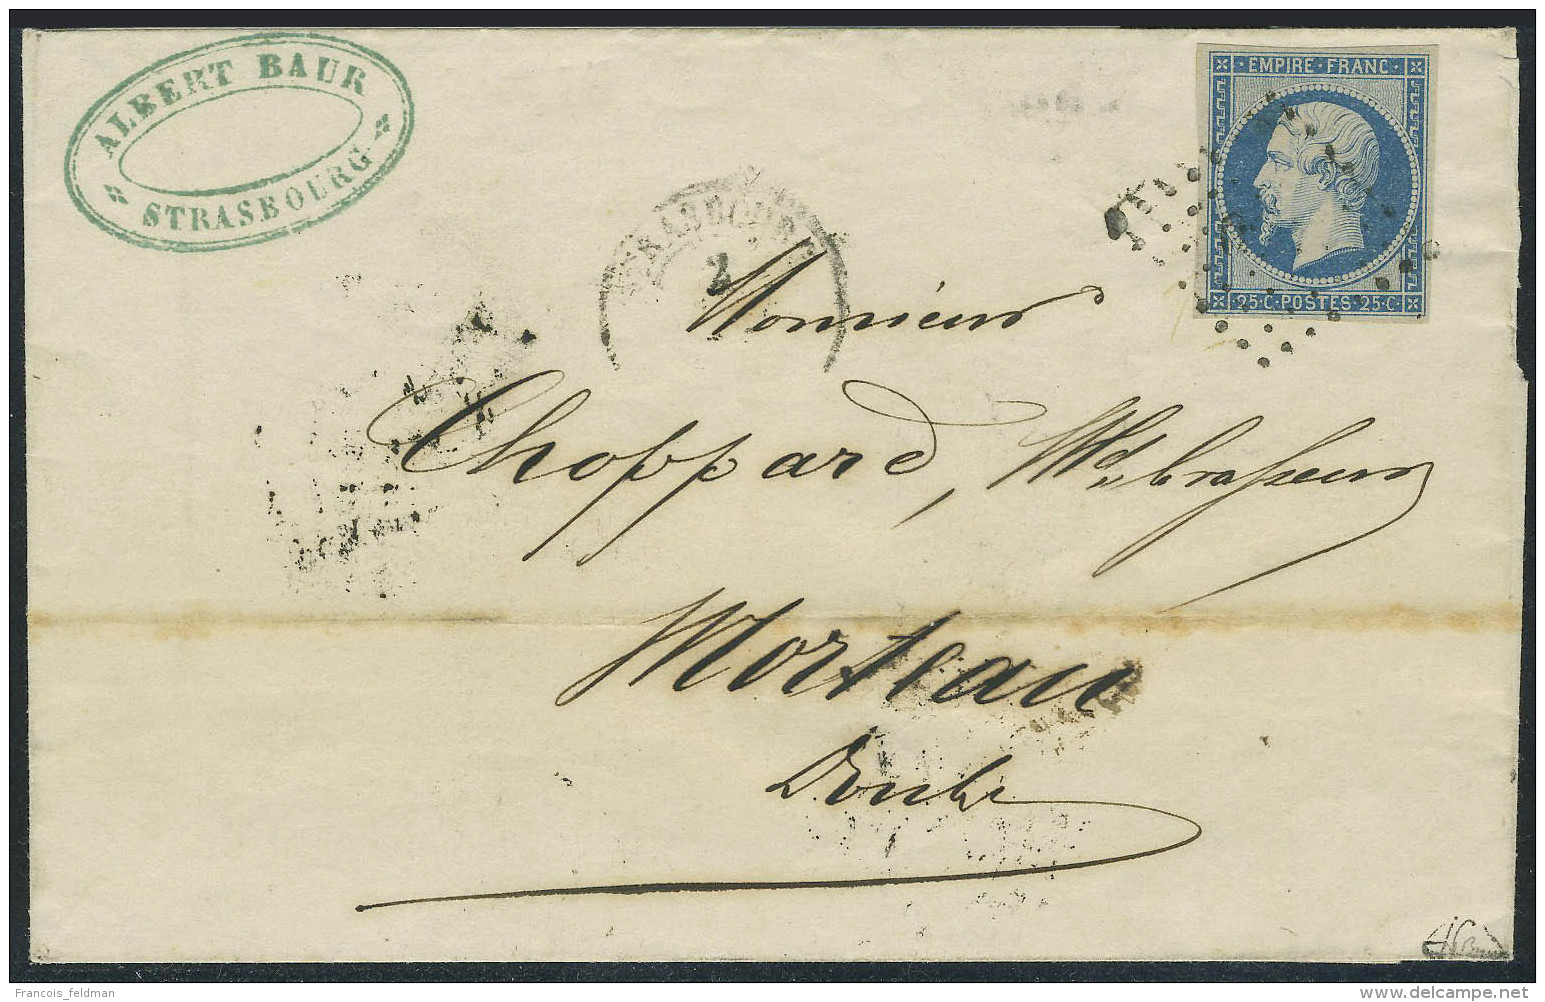 ALBERT BAUR
STRASBOURG
EMPIRE · FRANC ·
25 · C · POSTES 25 · C
STRASBOURG
2
Monsieur
Choppard, Md brasseur
Morteau
Doubs
Francois_feldman
delcampe.net